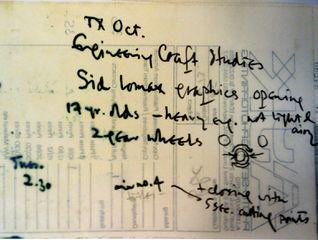 TX Oct.
Engineering Craft Studies
Sid Lomax graphics opening
17 yr. olds - heavy eng. not light & airy
2 gear wheels
Tues. 2.30
no. 4 + closing with
5 sec. cutting points